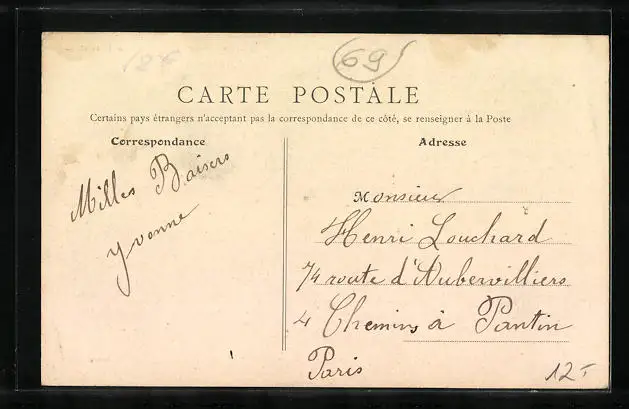 69
CARTE POSTALE
Certains pays étrangers n'acceptant pas la correspondance de ce côté, se renseigner à la Poste
Correspondance
Adresse
Milles Baisers
Yvonne
Monsieur
Henri Louchard
74 route d'Aubervilliers
4 Chemins à Pantin
Paris
12.-